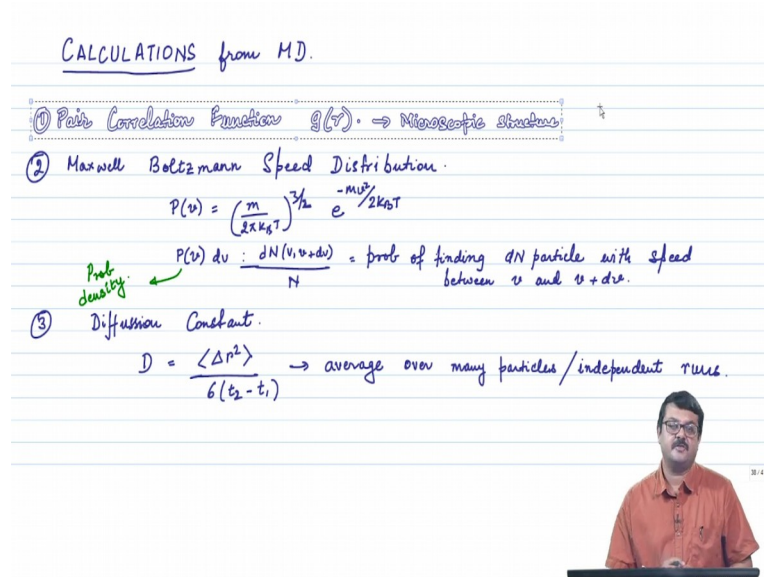 CALCULATIONS from MD.
① Pair Correlation Function g(r). → Microscopic structure
② Maxwell Boltzmann Speed Distribution.
P(v) = (m/2πk_BT)^3/2 e^-mv²/2k_BT
P(v) dv : dN(v, v+dv)/N = prob of finding dN particle with speed
between v and v + dv.
Prob
density.
③ Diffussion Constant.
D = ⟨Δr²⟩/6(t₂-t₁) → average over many particles/independent runs.